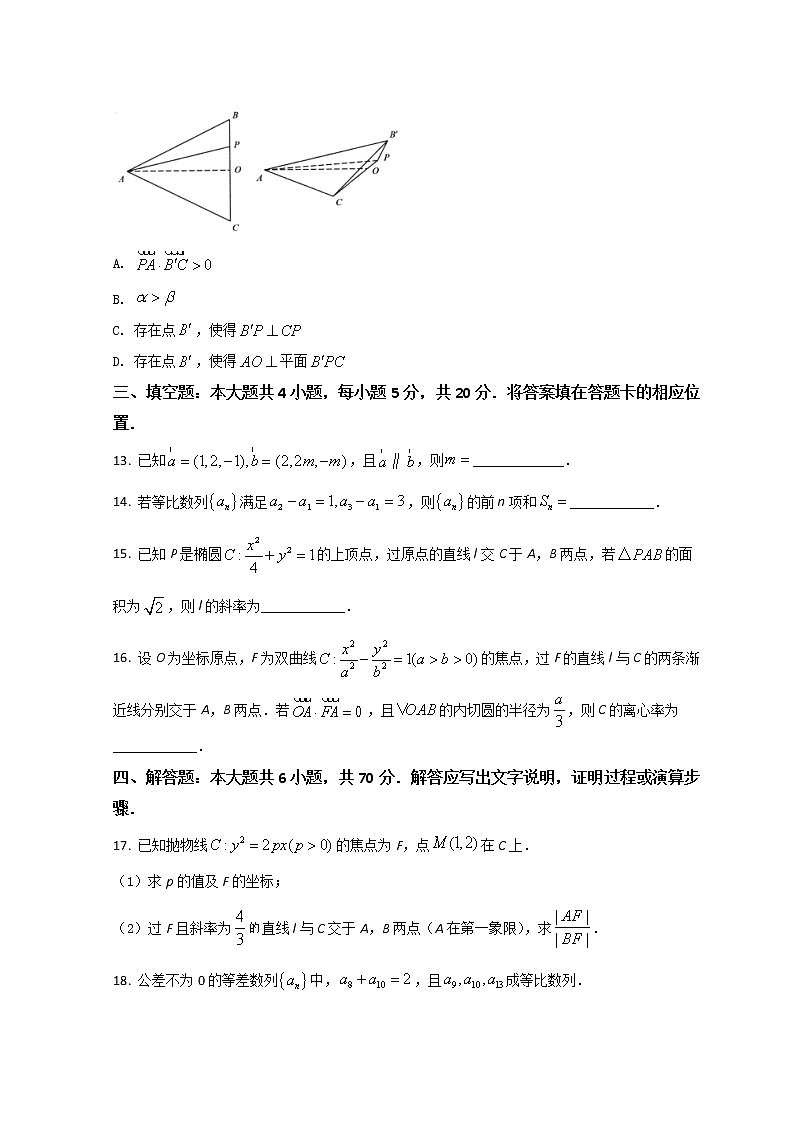 B
P
A
O
C
B′
P
A
O
C
A. PA · B′C > 0
B. α > β
C. 存在点 B′ ,使得 B′P ⊥ CP
D. 存在点 B′ ,使得 AO ⊥ 平面 B′PC
三、填空题：本大题共 4 小题，每小题 5 分，共 20 分．将答案填在答题卡的相应位
置．
13. 已知 a = (1,2,−1), b = (2,2m,−m) ,且 a ∥ b ,则 m = _____________.
14. 若等比数列{aₙ}满足 a₂ − a₁ = 1, a₃ − a₁ = 3 ,则{aₙ}的前 n 项和 Sₙ = ____________.
15. 已知 P 是椭圆 C : x²/4 + y² = 1 的上顶点，过原点的直线 l 交 C 于 A，B 两点，若 △PAB 的面
积为 √2 ,则 l 的斜率为____________.
16. 设 O 为坐标原点，F 为双曲线 C : x²/a² − y²/b² = 1(a > b > 0) 的焦点，过 F 的直线 l 与 C 的两条渐
近线分别交于 A，B 两点．若 OA · FA = 0 ,且 VOAB 的内切圆的半径为 a/3 ,则 C 的离心率为
____________.
四、解答题：本大题共 6 小题，共 70 分．解答应写出文字说明，证明过程或演算步
骤．
17. 已知抛物线 C : y² = 2px(p > 0) 的焦点为 F，点 M(1,2) 在 C 上．
（1）求 p 的值及 F 的坐标；
（2）过 F 且斜率为 4/3 的直线 l 与 C 交于 A，B 两点（A 在第一象限），求 |AF|/|BF| .
18. 公差不为 0 的等差数列{aₙ}中，a₈ + a₁₀ = 2 ,且 a₉, a₁₀, a₁₃ 成等比数列．